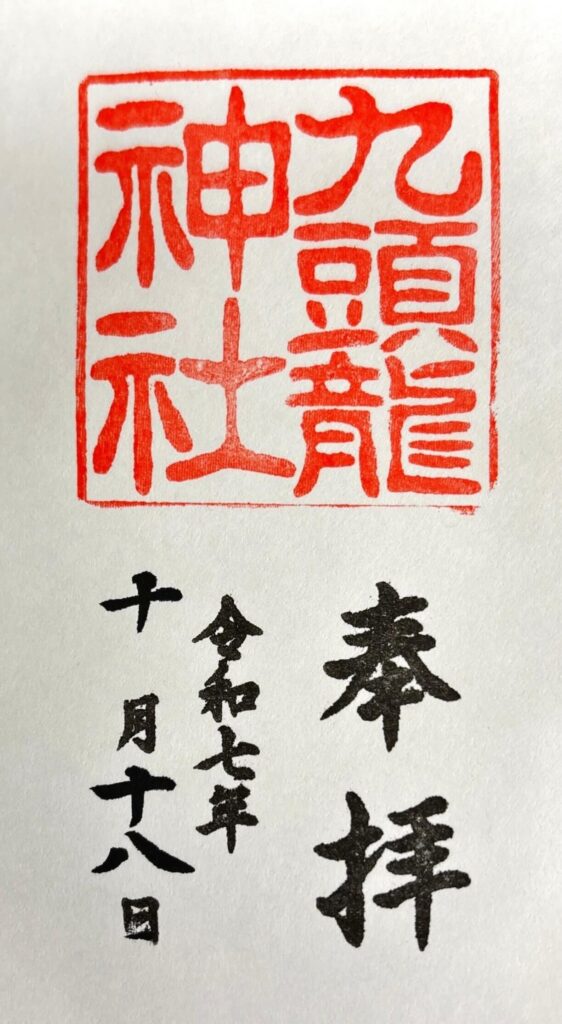 九頭龍
神社
奉拝
令和七年
十月十八日